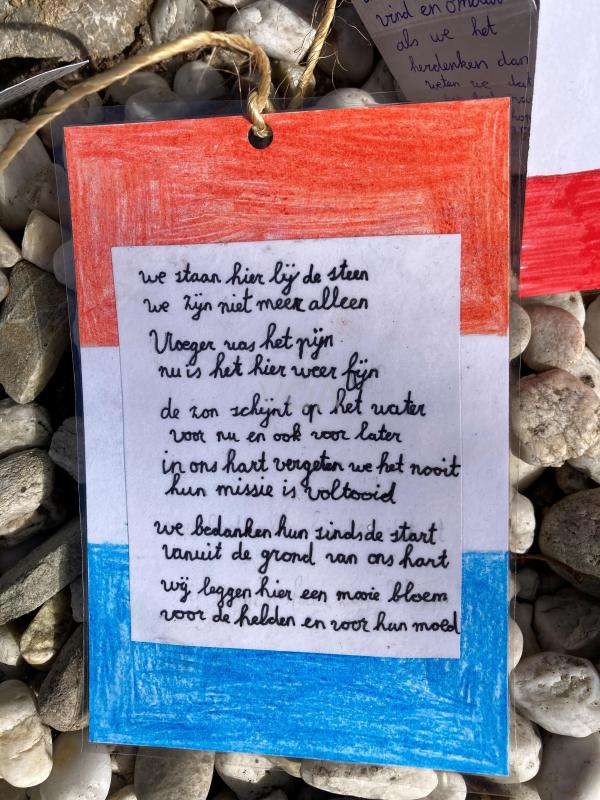 vind en omdat
als we het
herdenken dan
weten we dat
we staan hier bij de steen
we zijn niet meer alleen
Vroeger was het pijn
nu is het hier weer fijn
de zon schijnt op het water
voor nu en ook voor later
in ons hart vergeten we het nooit
hun missie is voltooid
we bedanken hun sinds de start
vanuit de grond van ons hart
wij leggen hier een mooie bloem
voor de helden en voor hun moed